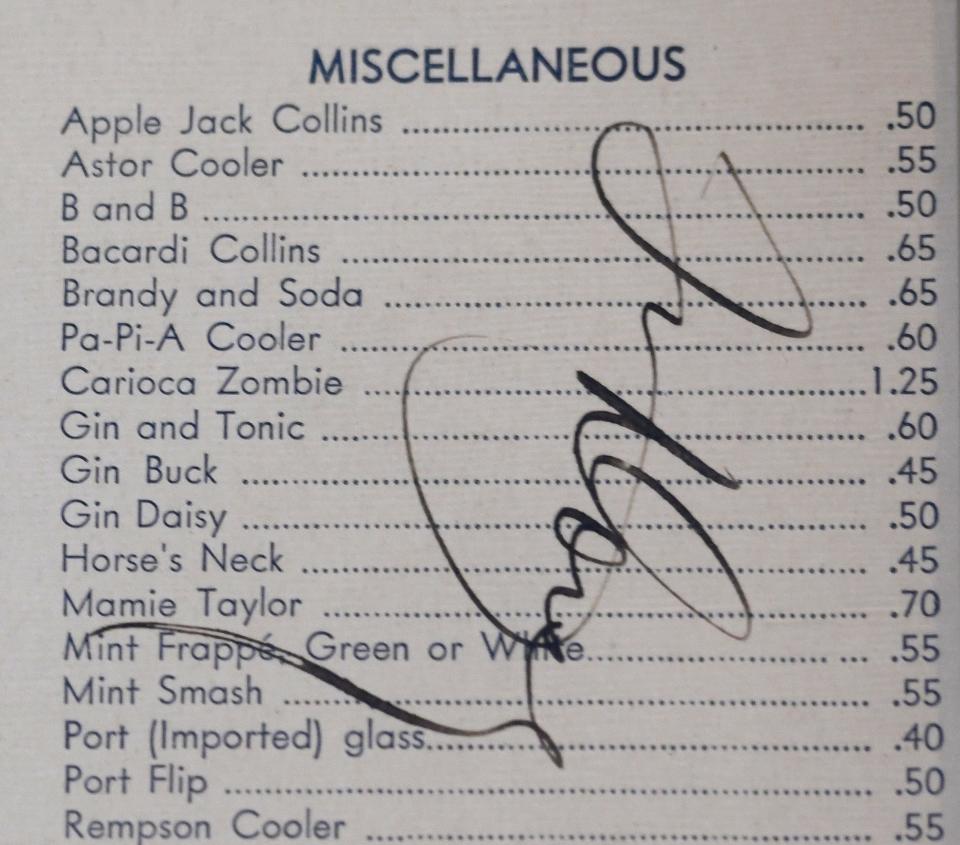 MISCELLANEOUS
Apple Jack Collins .50
Astor Cooler .55
B and B .50
Bacardi Collins .65
Brandy and Soda .65
Pa-Pi-A Cooler .60
Carioca Zombie 1.25
Gin and Tonic .60
Gin Buck .45
Gin Daisy .50
Horse's Neck .45
Mamie Taylor .70
Mint Frappé, Green or White .55
Mint Smash .55
Port (Imported) glass .40
Port Flip .50
Rempson Cooler .55